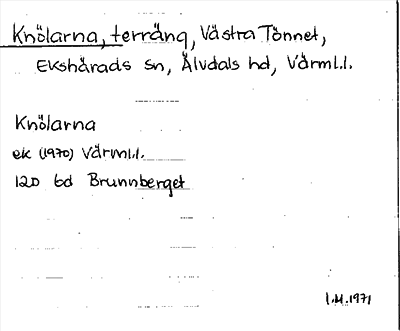 Knölarna, terräng, Västra Tönnet,
Ekshärads sn, Älvdals hd, Värml.l.
Knölarna
ek (1970) Värml.l.
12D 6d Brunnberget
I.M.1971